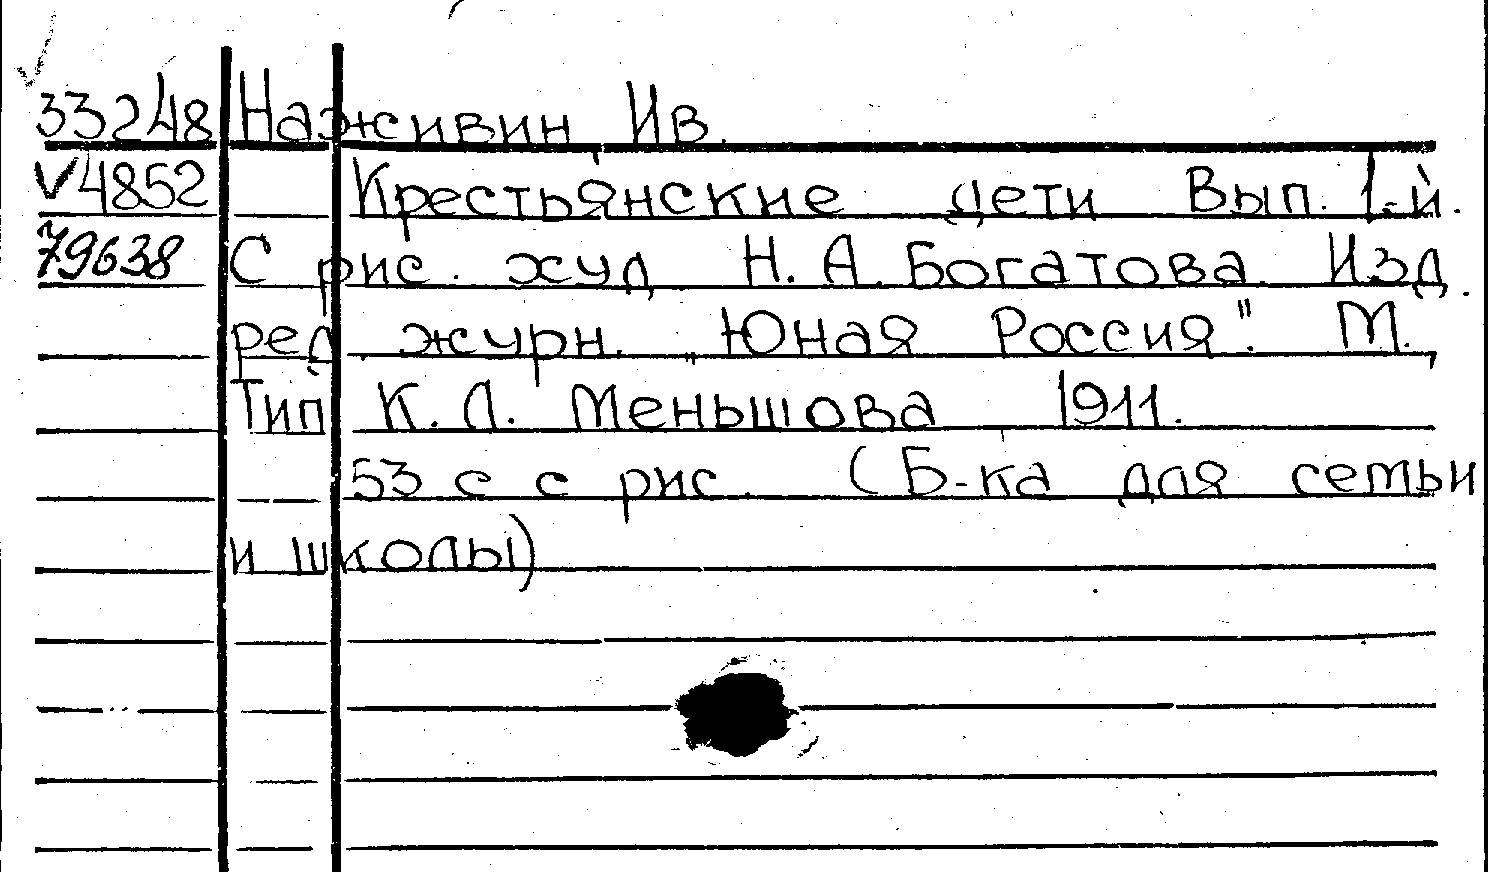 33248 Наживин Ив.
V4852 Крестьянские дети Вып. 1-й.
79638 С рис. худ Н. А. Богатова. Изд.
ред. журн. „Юная Россия". М.,
Тип К. Л. Меньшова 1911.
53 с с рис. (Б-ка для семьи
и школы)